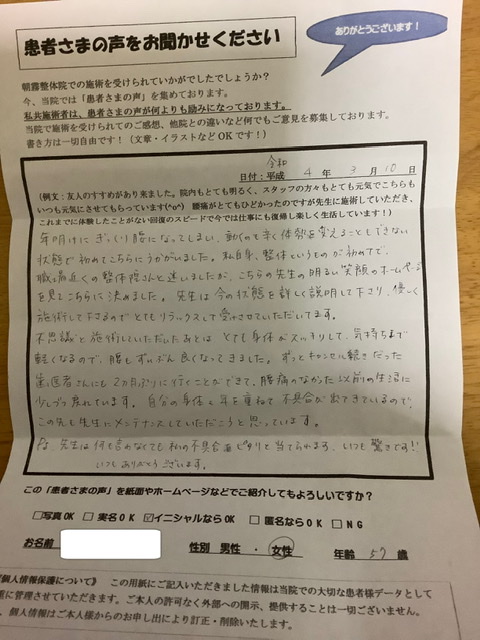 患者さまの声をお聞かせください
ありがとうございます！
朝霧整体院での施術を受けられていかがでしたでしょうか？
今、当院では「患者さまの声」を集めております。
私共施術者は、患者さまの声が何よりも励みになっております。
当院で施術を受けられてのご感想、他院との違いなど何でもご意見を募集しております。
書き方は一切自由です！（文章・イラストなどOKです！）
令和
日付：平成 4 年 3 月 10 日
（例文：友人のすすめがあり来ました。院内もとても明るく、スタッフの方々もとても元気でこちらも
いつも元気にさせてもらっています(^o^) 腰痛がとてもひどかったのですが先生に施術していただき、
これまでに体験したことがない回復のスピードで今では仕事にも復帰し楽しく生活しています！）
年明けにぎっくり腰になってしまい、動くのも辛く体勢を変えることもできない
状態で初めてこちらにうかがいました。私自身、整体というものが初めてで、
職場近くの整体院さんと迷いましたが、こちらの先生の明るい笑顔のホームページ
を見てこちらに決めました。先生は今の状態を詳しく説明して下さり、優しく
施術して下さるのでとてもリラックスして受けさせていただいてます。
不思議と施術していただいたあとは とても身体がスッキリして、気持ちまで
軽くなるので、腰もずいぶん良くなってきました。ずっとキャンセル続きだった
歯医者さんにも2カ月ぶりに行くことができて、腰痛のなかった以前の生活に
少しづつ戻れています。自分の身体も年を重ねて 不具合が出てきているので、
この先も先生にメンテナンスしていただこうと思っています。
先生は何も言わなくても私の不具合 ピタリと当てられます、いつも驚きです!!
いつもありがとうございます。
この「患者さまの声」を紙面やホームページなどでご紹介してもよろしいですか？
□写真OK □ 実名OK ☑イニシャルならOK □ 匿名ならOK □ NG
お名前 性別 男性 ・ 女性 年齢 57 歳
個人情報保護について》 この用紙にご記入いただきました情報は当院での大切な患者様データとして
重に管理させていただきます。ご本人の許可なく外部への開示、提供することは一切ございません。
、個人情報はご本人様からのお申し出により訂正・削除いたします。